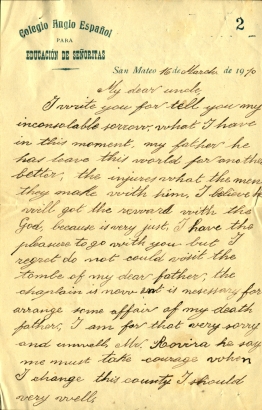 Colegio Anglo Español
PARA
EDUCACIÓN DE SEÑORITAS
2
San Mateo 16 de March de 1910
My dear uncle,
I write you for tell you my
inconsolable sorrow, what I have
in this moment, my father he
has leave this world for anothe
better, the injures what the men
they made with him, I believe he
will got the reward with the
God, because is very just, I have the
pleasure to go with you but I
regret do not could visit the
tombe of my dear father, the
chaplain is now is nessesary for
arrange some affair of my death
father, I am for that very sorry
and unwell, Mr. Rovira he say
me must take courage when
I change this county I should
very well,